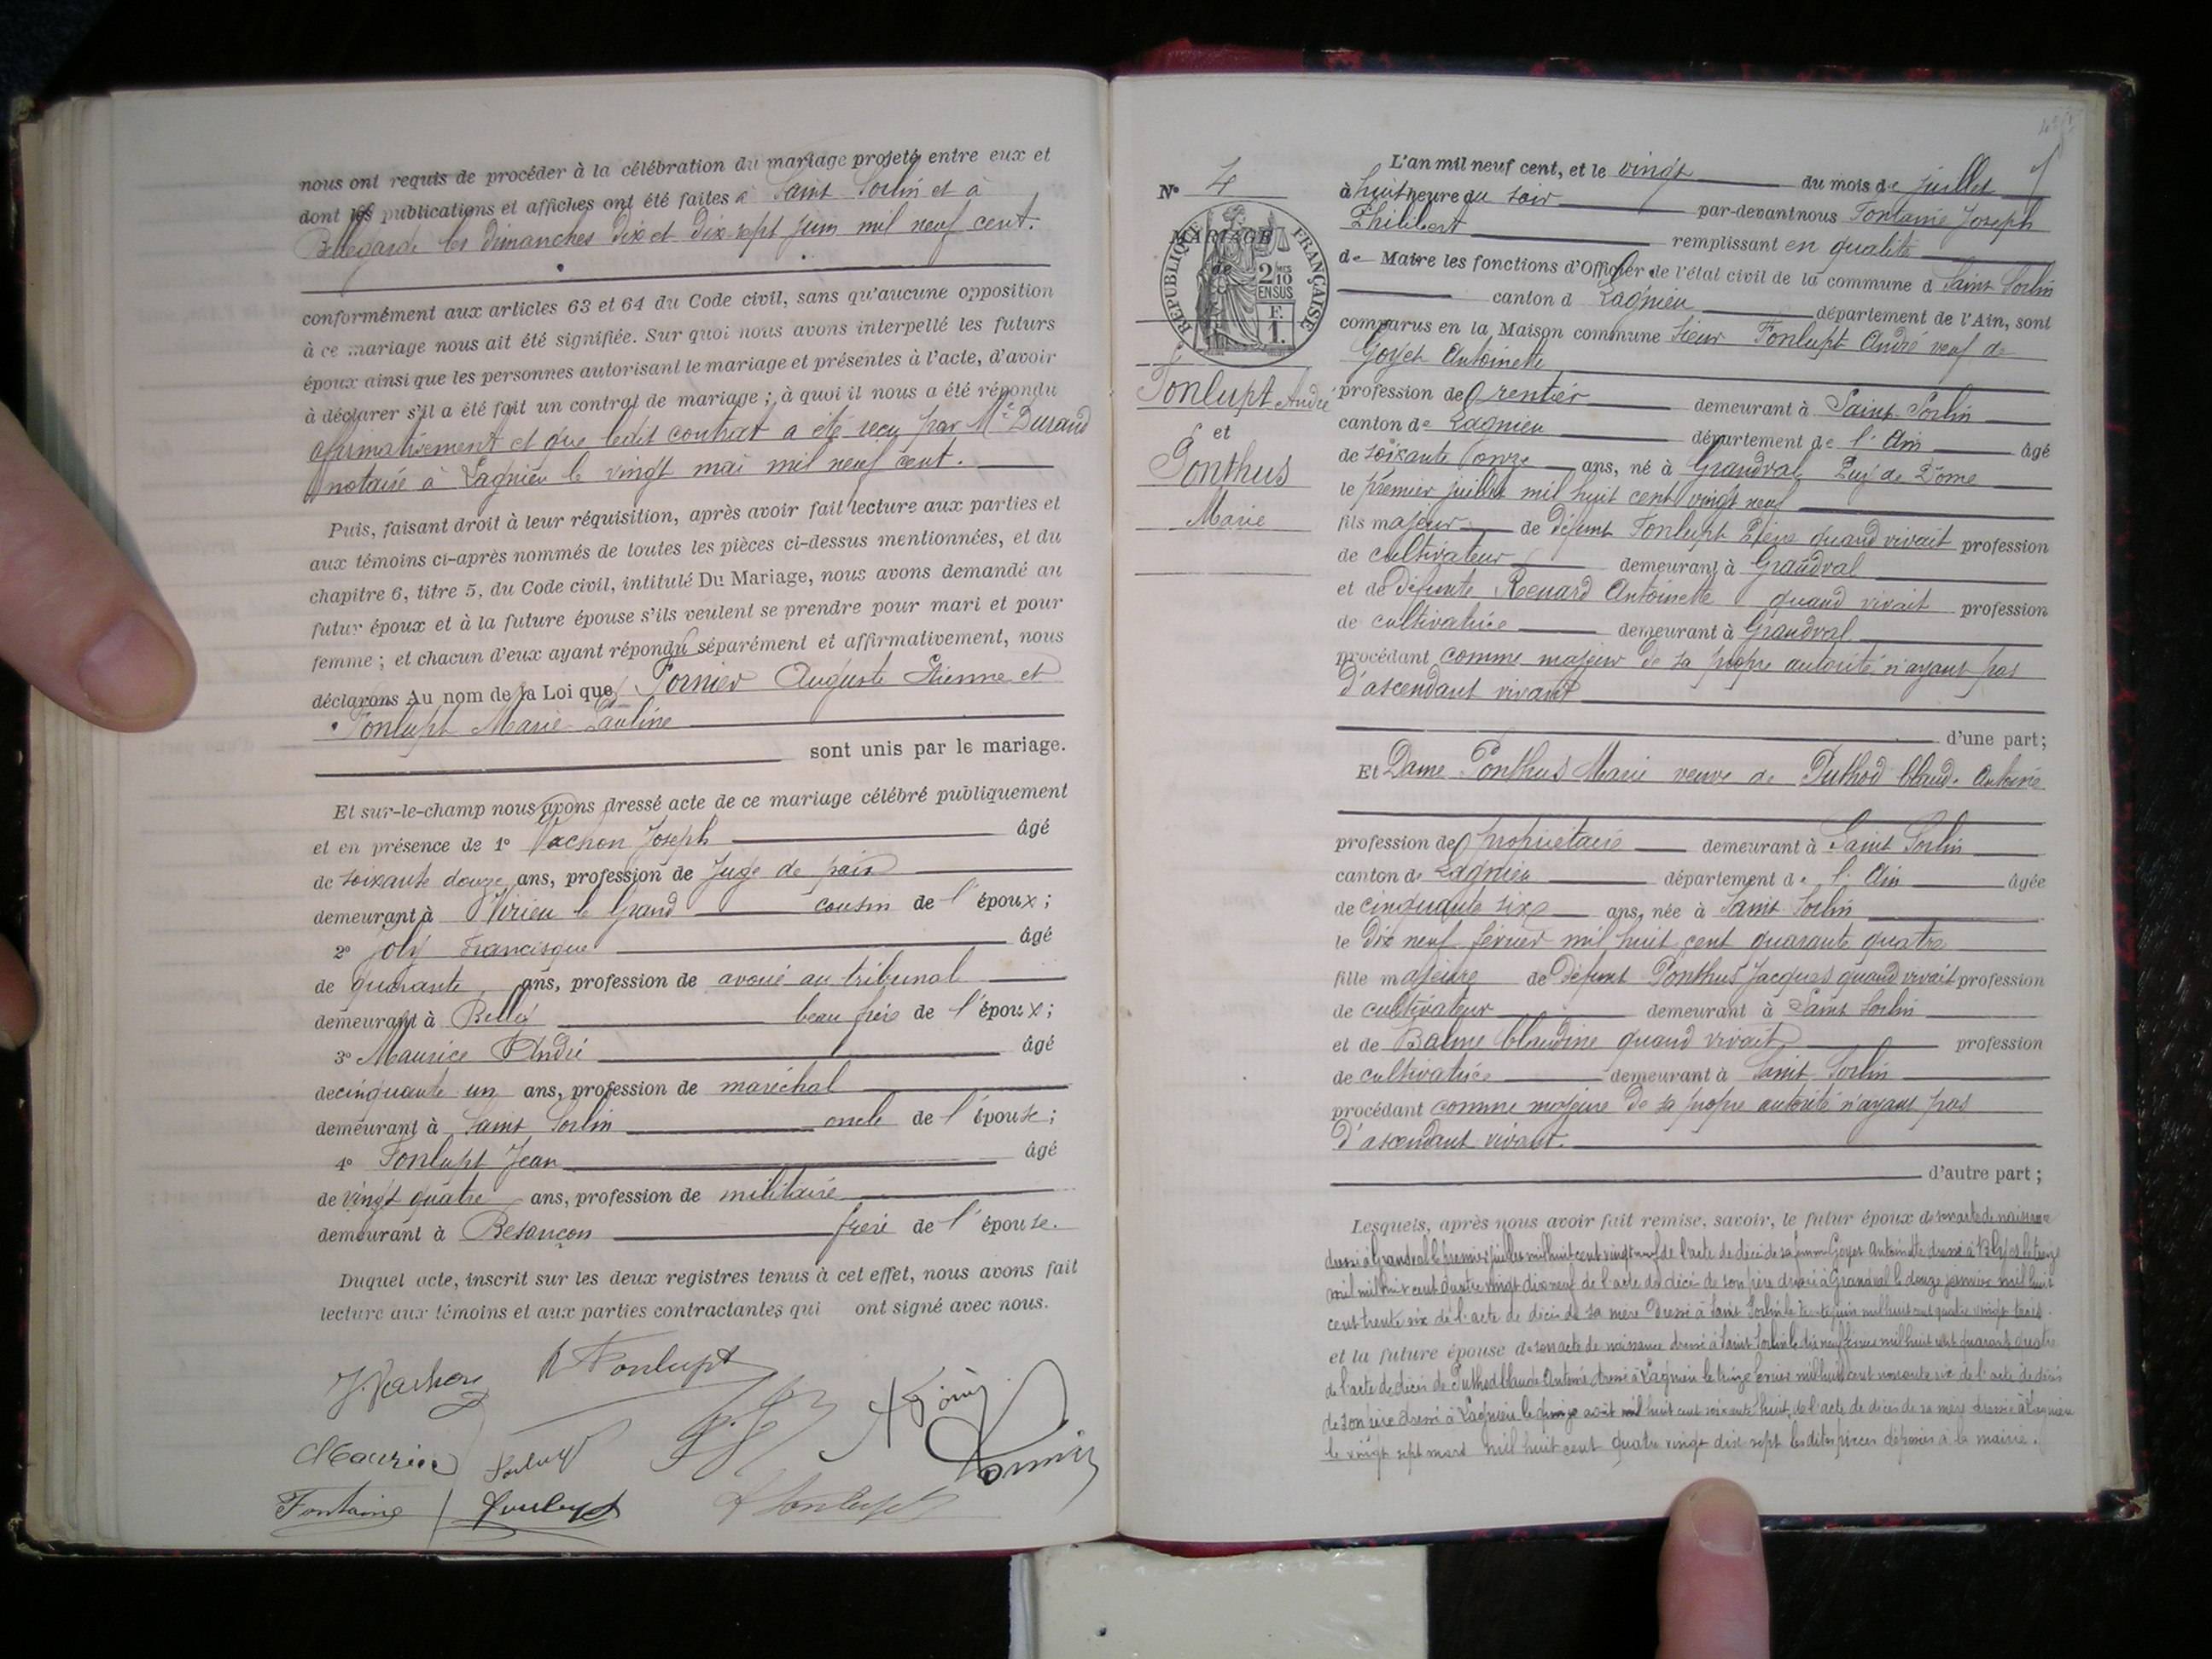 nous ont requis de procéder à la célébration du mariage projeté entre eux et
dont les publications et affiches ont été faites à Saint Sorlin et à
Bellegarde les dimanches dix et dix-sept juin mil neuf cent.
conformément aux articles 63 et 64 du Code civil, sans qu'aucune opposition
à ce mariage nous ait été signifiée. Sur quoi nous avons interpellé les futurs
époux ainsi que les personnes autorisant le mariage et présentes à l'acte, d'avoir
à déclarer s'il a été fait un contrat de mariage ; à quoi il nous a été répondu
affirmativement et que ledit contrat a été reçu par Me Durand
notaire à Lagnieu le vingt mai mil neuf cent.
Puis, faisant droit à leur réquisition, après avoir fait lecture aux parties et
aux témoins ci-après nommés de toutes les pièces ci-dessus mentionnées, et du
chapitre 6, titre 5, du Code civil, intitulé Du Mariage, nous avons demandé au
futur époux et à la future épouse s'ils veulent se prendre pour mari et pour
femme ; et chacun d'eux ayant répondu séparément et affirmativement, nous
déclarons Au nom de la Loi que Fornier Auguste Etienne et
Fonlupt Marie-Pauline
sont unis par le mariage.
Et sur-le-champ nous avons dressé acte de ce mariage célébré publiquement
et en présence de 1° Vachon Joseph âgé
de soixante douze ans, profession de Juge de paix
demeurant à Virieu le Grand cousin de l'époux ;
2° Joly Francisque âgé
de quarante ans, profession de avoué au tribunal
demeurant à Belley beau frère de l'époux ;
3° Maurice André âgé
de cinquante un ans, profession de maréchal
demeurant à Saint Sorlin oncle de l'épouse ;
4° Fonlupt Jean âgé
de vingt quatre ans, profession de militaire
demeurant à Besançon frère de l'épouse.
Duquel acte, inscrit sur les deux registres tenus à cet effet, nous avons fait
lecture aux témoins et aux parties contractantes qui ont signé avec nous.
J. Vachon Fonlupt
Maurice
Fontaine Fonlupt
N° 4
MARIAGE
de
RÉPUBLIQUE FRANÇAISE
2/10 MES
EN SUS
F.
1.
Fonlupt André
et
Ponthus
Marie
L'an mil neuf cent, et le vingt du mois de juillet
à huit heure du soir par-devant nous Fontaine Joseph
Philibert remplissant en qualité
de Maire les fonctions d'Officier de l'état civil de la commune d Saint Sorlin
canton d Lagnieu département de l'Ain, sont
comparus en la Maison commune Sieur Fonlupt André veuf de
Goyet Antoinette
profession de rentier demeurant à Saint-Sorlin
canton de Lagnieu département de l'Ain âgé
de soixante onze ans, né à Grandval Puy de Dôme
le premier juillet mil huit cent vingt neuf
fils majeur de défunt Fonlupt Pierre quand vivait profession
de cultivateur demeurant à Grandval
et de défunte Renard Antoinette quand vivait profession
de cultivatrice demeurant à Grandval
procédant comme majeur de sa propre autorité n'ayant pas
d'ascendant vivant
d'une part ;
Et Dame Ponthus Marie veuve de Puthod Claude Antoine
profession de propriétaire demeurant à Saint Sorlin
canton de Lagnieu département de l'Ain âgée
de cinquante six ans, née à Saint Sorlin
le dix neuf février mil huit cent quarante quatre
fille majeure de défunt Ponthus Jacques quand vivait profession
de cultivateur demeurant à Saint Sorlin
et de Balme Claudine quand vivait profession
de cultivatrice demeurant à Saint Sorlin
procédant comme majeure de sa propre autorité n'ayant pas
d'ascendant vivant.
d'autre part ;
Lesquels, après nous avoir fait remise, savoir, le futur époux de son acte de naissance
dressé à Grandval le premier juillet mil huit cent vingt neuf de l'acte de décès de sa femme Goyet Antoinette dressé à Blyes le treize
mil huit cent quatre vingt dix neuf de l'acte de décès de son père dressé à Grandval le douze janvier mil huit
cent trente six de l'acte de décès de sa mère dressé à Saint Sorlin le trente juin mil huit cent quatre vingt trois
et la future épouse de son acte de naissance dressé à Saint Sorlin le dix neuf février mil huit cent quarante quatre
de l'acte de décès de Puthod Claude Antoine dressé à Lagnieu le treize mil huit cent soixante six de l'acte de décès
de son père dressé à Lagnieu le quinze août mil huit cent soixante huit, de l'acte de décès de sa mère dressé à Lagnieu
le vingt sept mars mil huit cent quatre vingt dix sept les dites pièces déposées à la mairie.